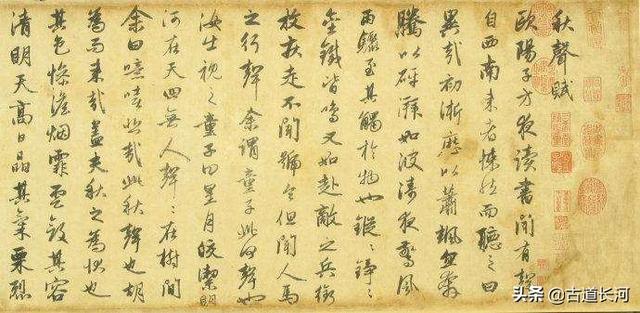 秋聲賦
歐陽子方夜讀書聞有聲
自西南來者悚然而聽之曰
異哉初淅瀝以蕭颯忽奔
騰以砰湃如波濤夜驚風
雨驟至其觸於物也鏦〻錚〻
金鐵皆鳴又如赴敵之兵銜
枚疾走不聞號令但聞人馬
之行聲余謂童子此何聲也
汝出視之童子曰星月皎潔明
河在天四無人聲〻在樹間
余曰噫嘻悲哉此秋聲也胡
為而來哉蓋夫秋之為狀也
其色慘澹烟霏雲斂其容
清明天高日晶其氣栗冽
头条@古道长河